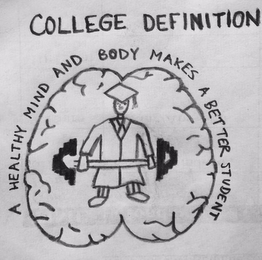 COLLEGE DEFINITION
A HEALTHY MIND AND BODY MAKES A BETTER STUDENT